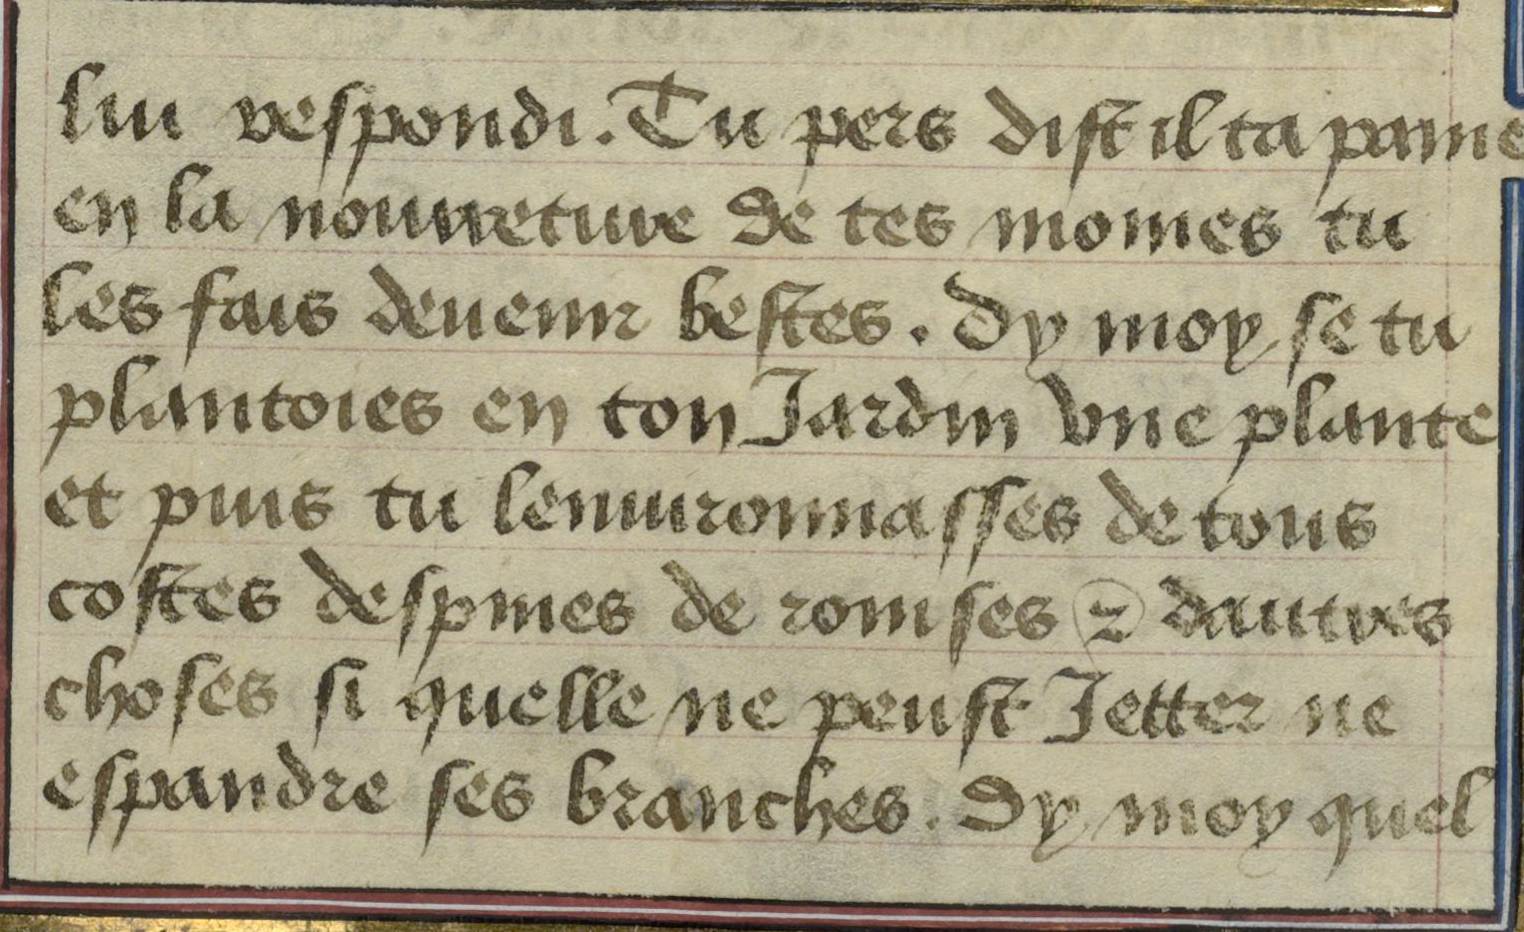 lui respondi. Tu pers dist il ta paine
en la nourreture de tes moines tu
les fais deuenir bestes. Dy moy se tu
plantoies en ton Jardin vne plante
et puis tu lenuironnasses de tous
costes despines de ronises ⁊ dautres
choses si quelle ne peust Jetter ne
espandre ses branches. Dy moy quel